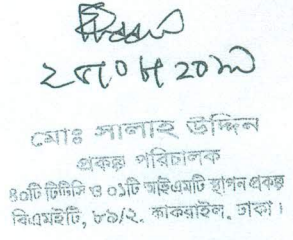 মোঃ সালাহ উদ্দিন
প্রকল্প পরিচালক
৪০টি টিটিসি ও ০১টি আইএমটি স্থাপন প্রকল্প
বিএমইটি, ৮৯/২, কাকরাইল, ঢাকা।